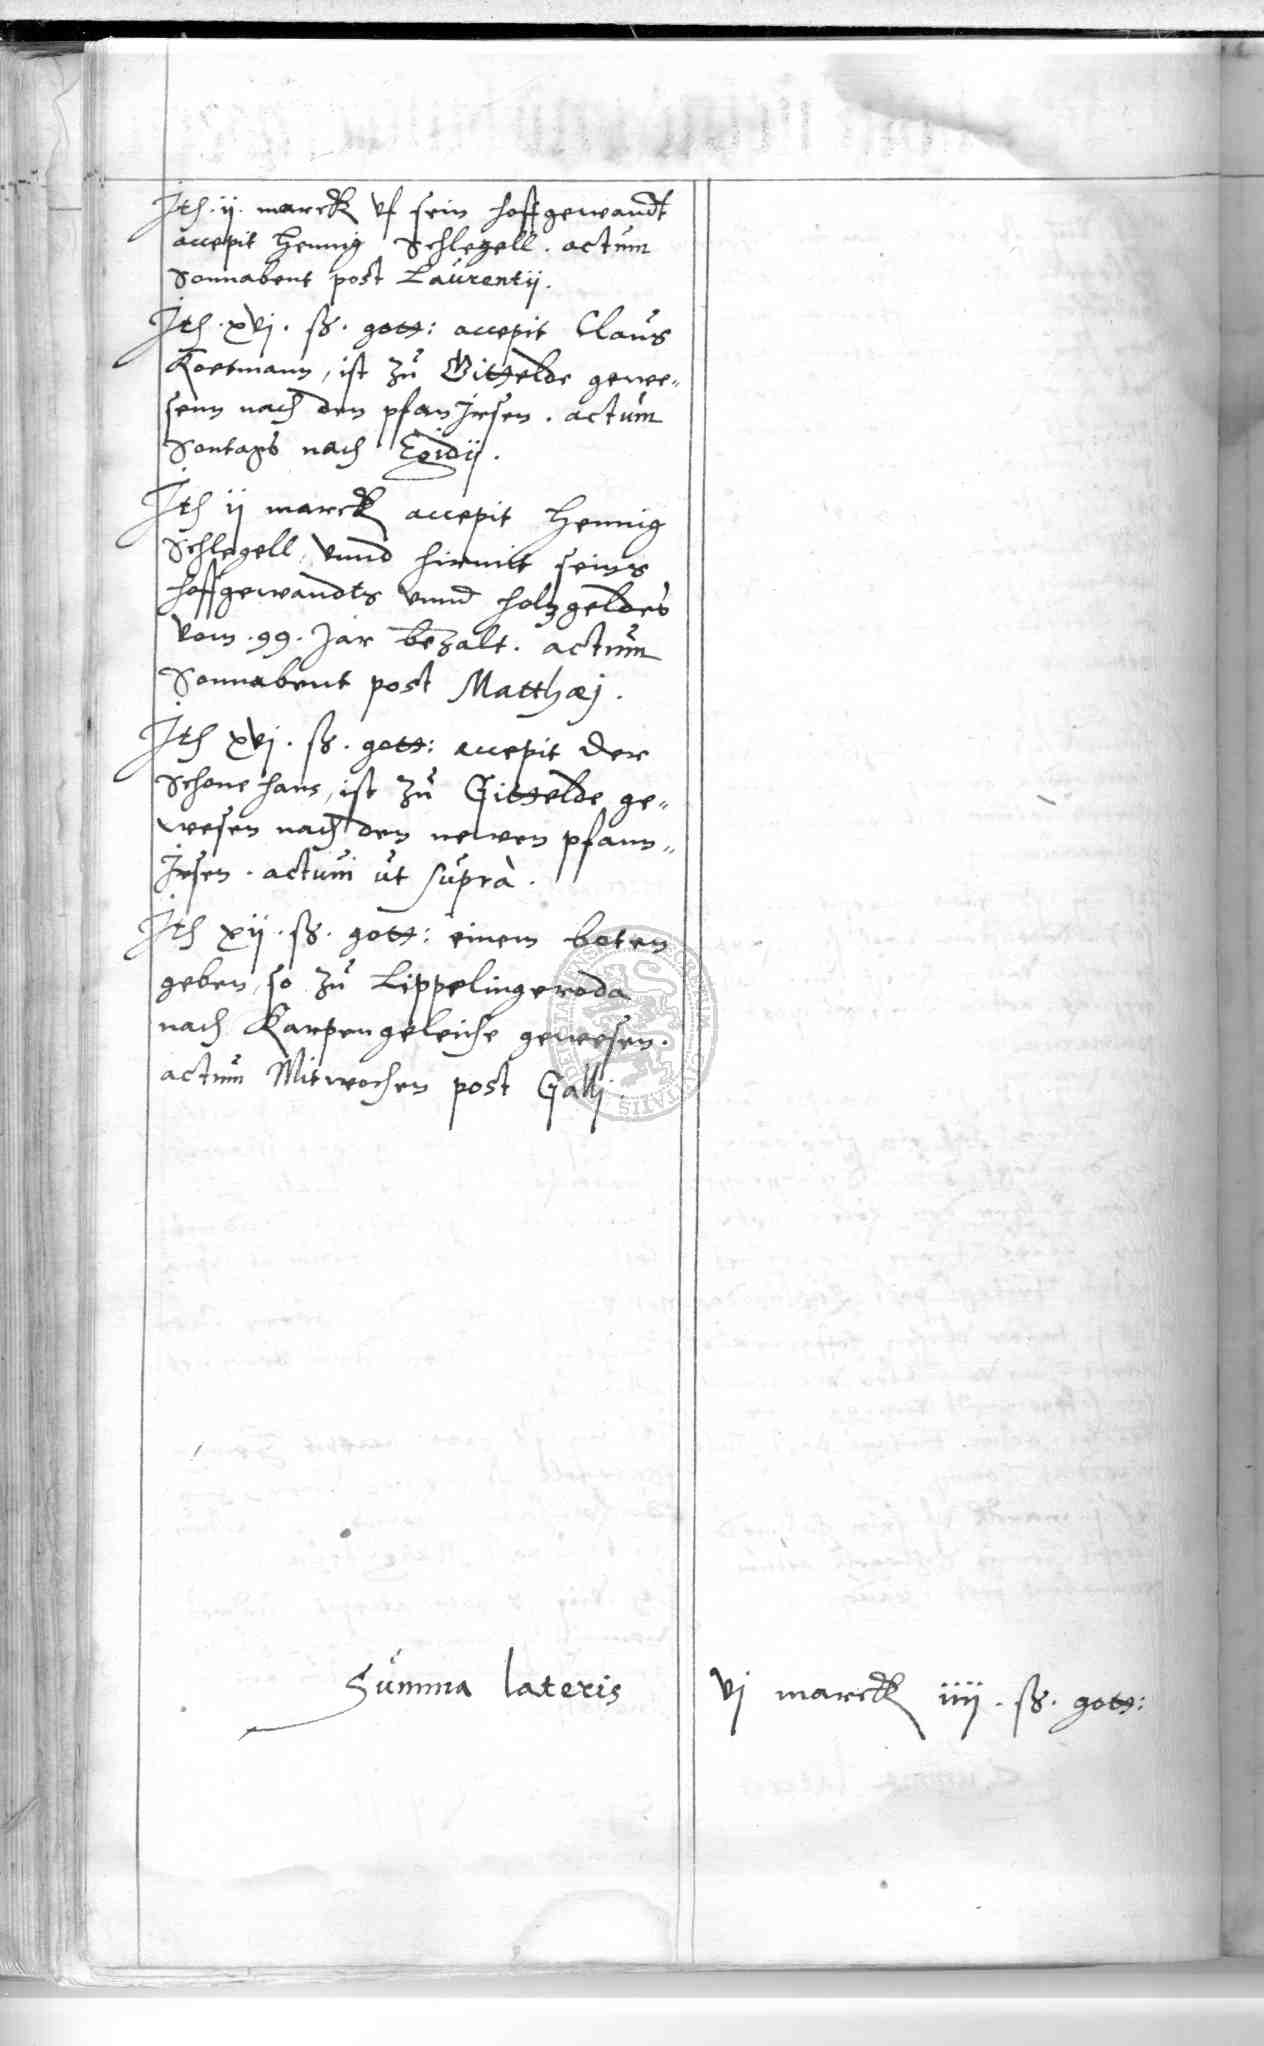 Ith. ij. marck vf sein hoffgewandt
accepit Hennig Schlegell. actum
Sonnabent post Laurentij.
Ith. xvj. ß. gott: accepit Claus
Koetmann, ist zu Gittelde gewe-
senn nach den pfan Jrsen. actum
Sontags nach Egidij.
Ith ij marck accepit Hennig
Schlegell, vnnd hirmit seins
hoffgewandts vnnd holtzgeldes
vom .99. Jar bezalt. actum
Sonnabent post Matthæj.
Ith xvj. ß. gott: accepit der
Schone Hans, ist zu Gittelde ge-
wesen nach den newen pfann-
Jrsen. actum ut supra.
Ith xij. ß. gott: einem boten
geben, so zu Lippelingeroda
nach Karpengeleiche gewesen.
actum Mitwochen post Gallj.
Summa lateris vj marck iiij. ß. gott: